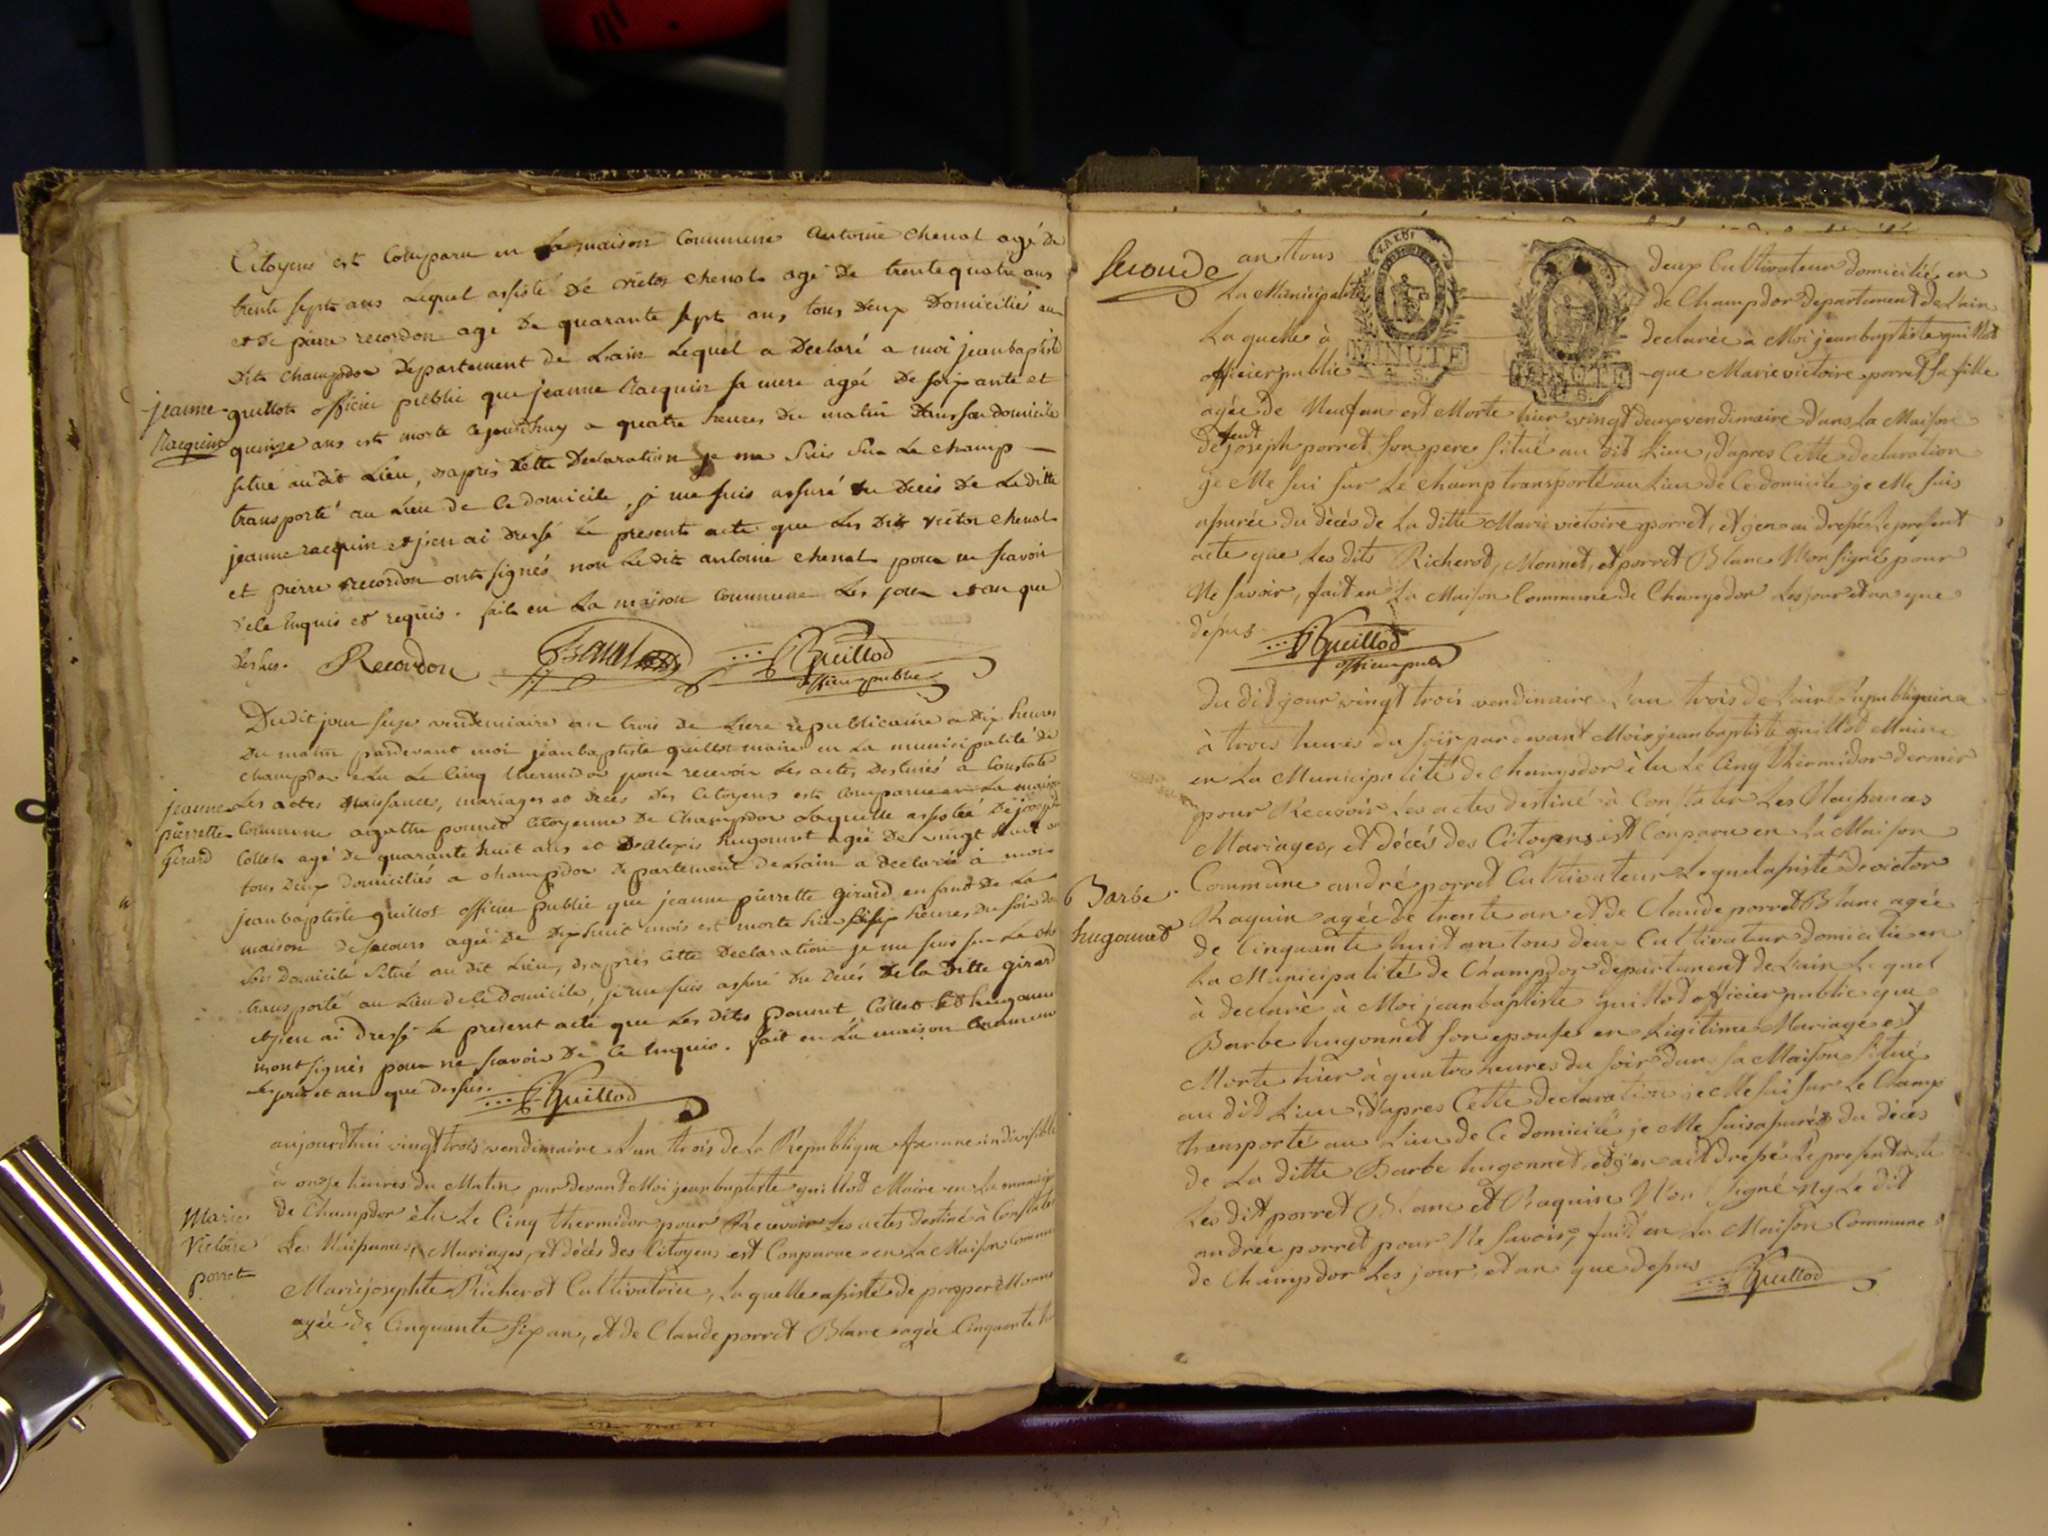 Citoyens est Comparu en la maison Commune antoine chenal agé de
trente sept ans Lequel assisté de victor chenal agé de trente quatre ans
et de pierre recordon agé de quarante sept ans tous deux Domiciliés au
dit champdor département de Lain Lequel a Declaré a moi jeanbaptiste
jeanne Racquin
guillot officier public que jeanne Racquin sa mere agée de soixante et
quinze ans est morte cejourdhuy a quatre heures du matin dans son domicile
situé audit Lieu, daprès Cette Declaration je me suis sur Le champ
transporté au Lieu de ce domicile, je me suis assuré du Décès de Laditte
jeanne racquin et jen ai dressé Le present acte que Les dits victor chenal
et pierre recordon ont signés non Ledit antoine chenal pour ne scavoir
de ce Enquis et requis. fait en La maison Commune Les jour et an que
dessus. Recordon Guillod
officier public
Dudit jour seize vendemiaire an trois de Lere republicaine a dix heures
Du matin pardevant moi jeanbaptiste guillot maire en La municipalité de
champdor elu Le Cinq thermidor pour recevoir Les actes Destinés a Constater
jeanne pierrette Girard
Les actes Naissances, mariages et deces des Citoyens est Comparue en La maison
Commune agathe ponnet Citoyenne de Champdor Laquelle assistée De joseph
Collet agé de quarante huit ans et de alexis hugonnet agée De vingt huit ans
tous deux domiciliés a champdor departement de Lain a declarée à moi
jeanbaptiste guillot officier public que jeanne pierrette girard enfant De La
maison de secours agée de Dix huit mois est morte hier heures du soir dans
son domicile situé au dit Lieu, daprès cette Declaration je me suis sur Le
transporté au Lieu de ce Domicile, je me suis assuré du Decés de la ditte girard
et jen ai dressé Le present acte que Les dits ponnet Collet et hugonnet
nont signés pour ne scavoir De ce Enquis. fait en La maison Commune
Les jour et an que dessus. Guillod
aujourdhui vingt trois vendimaire Lan trois de La Republique une indivisible
à onze heures du Matin pardevant Moi jeanbaptiste guillod Maire en La
Marie Victoire porret
de Champdor èlu Le Cinq thermidor pour Recevoir Les actes destiné à Constater
Les Naisances, Mariages, et décés des Citoyens est Comparue en La Maison Commune
Mariejosephte Richerot Cultivatrice, Laquelle asisté de prosper Monnet
agée de Cinquante six an, et de Claude porret Blanc agée Cinquante
Seconde
an tous deux Cultivateur domicilié en
La Municipalité de Champdor departement de Lain
Laquelle à declarée à Moi jeanbaptiste guillod
officier public que Marie victoire porret sa fille
MINUTE
agée de Neuf an est Morte hier vingt deux vendimaire dans La Maison
de feut joseph porret son pere situé au dit Lieu, dapres Cette declaration
je Me sui sur Le Champ transporté au Lieu de Ce domicile je Me suis
asurée du décés de La ditte Marie victoire porret, et jen ai dressé Le present
acte que Les dits Richerod, Monnet, et porret Blanc Non signé pour
Ne savoir, fait en La Maison Commune de Champdor Les jour et an que
depus Guillod
officier public
du dit jour vingt trois vendimaire Lan trois de Laire Republiquaine
à trois heures du soir par devant Moi jeanbaptiste guillod Maire
en La Municipalité de Champdor èlu Le Cinq thermidor dernier
pour Recevoir Les actes destiné à Constater Les Naisances
Mariages, et décés des Citoyens est Conparu en La Maison
Commune andré porret Cultivateur Lequel asisté de victor
Barbe hugonnet
Raquin agée de trente an et de Claude porret Blanc agée
de Cinquante huit an tous deux Cultivateur domicilié en
La Municipalité de Champdor departement de Lain Lequel
à declarè à Moi jeanbaptiste guillod officier public que
Barbe hugonnet son epouse en Legitime Mariage est
Morte hier à quatre heures du soir dans sa Maison situé
au dit Lieu, dapres Cette declaration je Me sui sur Le Champ
transporté au Lieu de Ce domicile je Me suis asuré du décés
de La ditte Barbe hugonnet, et jen ait dressé Le present acte
Les dit porret Blanc et Raquin Non signé Ny Le dit
andrée porret pour Ne savoir, fait en La Maison Commune
de Champdor Les jour et an que depus Guillod